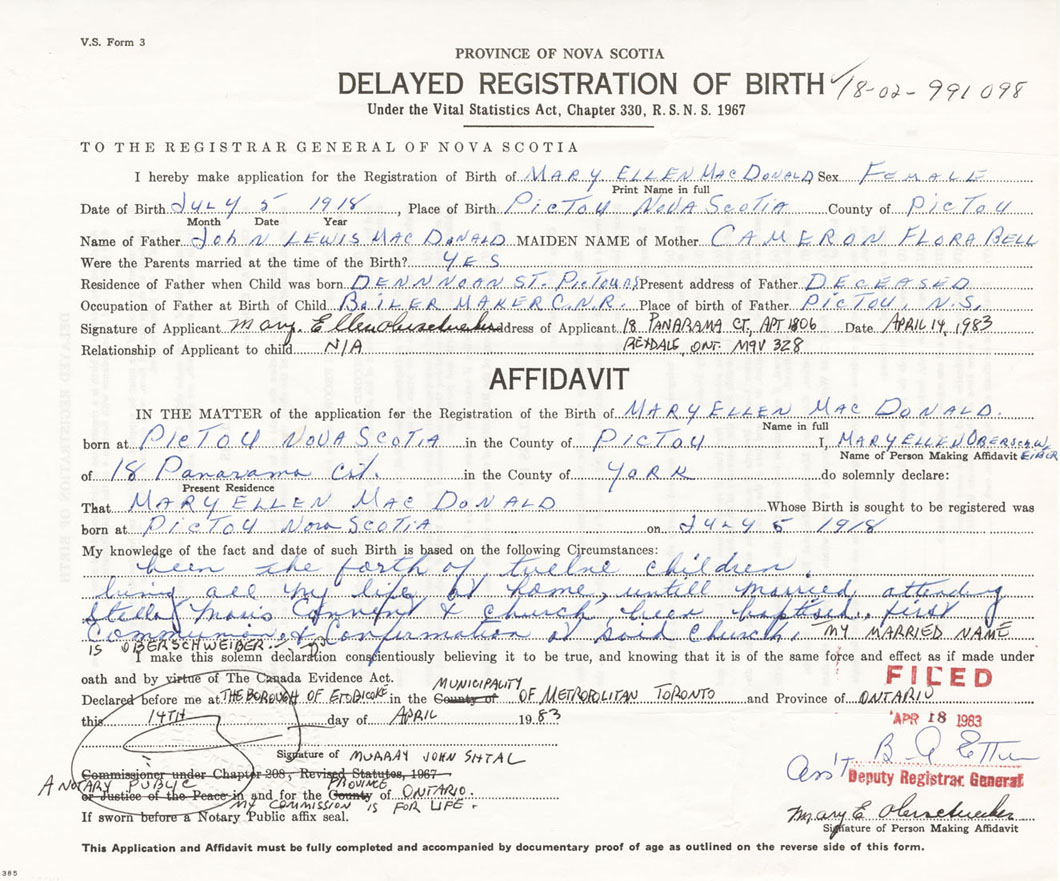 V.S. Form 3
PROVINCE OF NOVA SCOTIA
DELAYED REGISTRATION OF BIRTH 18-02-991098
Under the Vital Statistics Act, Chapter 330, R.S.N.S. 1967
TO THE REGISTRAR GENERAL OF NOVA SCOTIA
I hereby make application for the Registration of Birth of MARY ELLEN MACDONALD Sex FEMALE
Print Name in full
Date of Birth JULY 5 1918, Place of Birth PICTOU NOVA SCOTIA County of PICTOU
Month Date Year
Name of Father JOHN LEWIS MACDONALD MAIDEN NAME of Mother CAMERON FLORA BELL
Were the Parents married at the time of the Birth? YES
Residence of Father when Child was born ST. PICTOU NS Present address of Father DECEASED
Occupation of Father at Birth of Child BOILER MAKER C.N.R. Place of birth of Father PICTOU, N.S.
Signature of Applicant Mary Ellen Address of Applicant 18 PANARAMA CT, APT 1806 Date APRIL 14, 1983
Relationship of Applicant to child N/A REXDALE, ONT. M9V 3Z8
AFFIDAVIT
IN THE MATTER of the application for the Registration of the Birth of MARY ELLEN MAC DONALD.
Name in full
born at PICTOU NOVA SCOTIA in the County of PICTOU I, MARY ELLEN OBERSCHWEIBER
Name of Person Making Affidavit
of 18 Panarama Crt. in the County of YORK do solemnly declare:
Present Residence
That MARY ELLEN MAC DONALD Whose Birth is sought to be registered was
born at PICTOU Nova SCOTIA on JULY 5 1918
My knowledge of the fact and date of such Birth is based on the following Circumstances:
been the forth of twelve children.
living all my life at home, untill married attending
Stella Maris Convent & church, been baptised, first
Communion, & Confirmation at said church. MY MARRIED NAME
IS OBERSCHWEIBER.
I make this solemn declaration conscientiously believing it to be true, and knowing that it is of the same force and effect as if made under
oath and by virtue of The Canada Evidence Act.
FILED
MUNICIPALITY
Declared before me at THE BOROUGH OF ETOBICOKE in the County of OF METROPOLITAN TORONTO and Province of ONTARIO
this 14TH day of APRIL 1983
APR 18 1983
Signature of MURRAY JOHN
Ass't Deputy Registrar General
Commissioner under Chapter 208, Revised Statutes, 1967
A NOTARY PUBLIC PROVINCE
or Justice of the Peace in and for the County of ONTARIO.
MY COMMISSION IS FOR LIFE.
Mary E
If sworn before a Notary Public affix seal.
Signature of Person Making Affidavit
This Application and Affidavit must be fully completed and accompanied by documentary proof of age as outlined on the reverse side of this form.
385